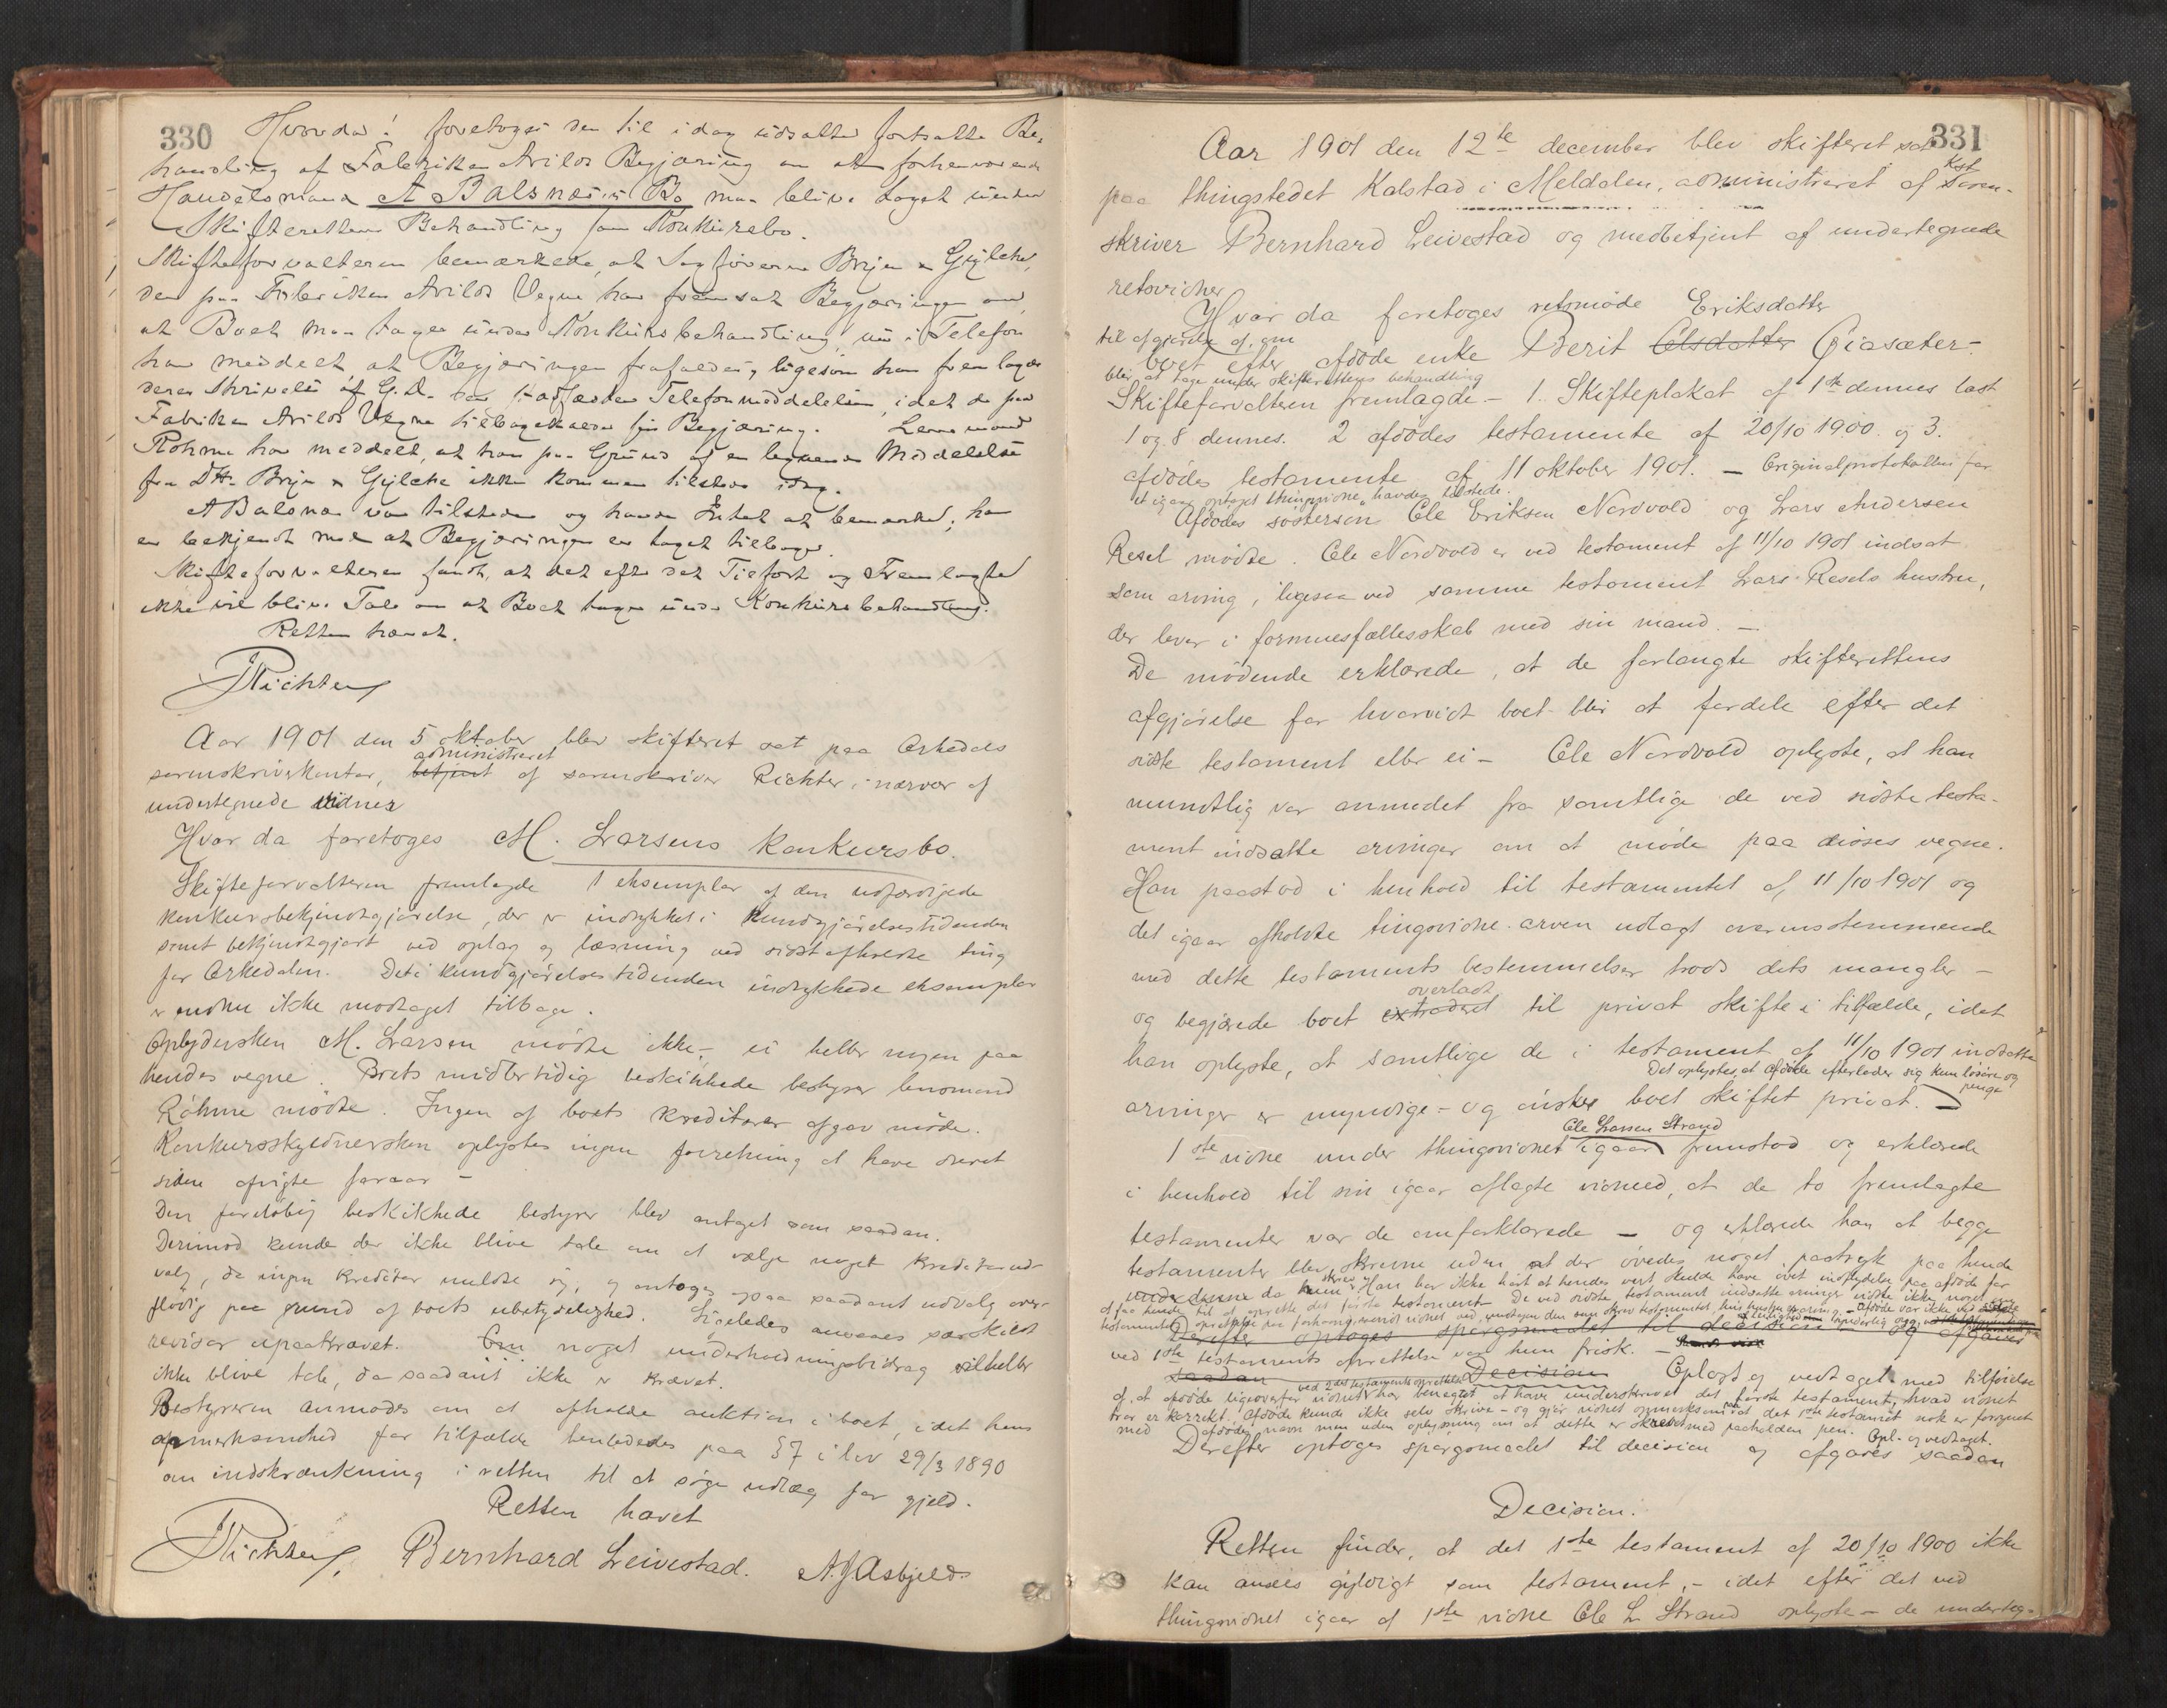 330
Hvorda: foretoges den til idag udsatte fortsatte Be-
handling af Fabrikken Arilds Begjæring om at forhenværende
Handelsmand A Balsnæs's Bo maa blive taget under
Skifterettens Behandling som Konkursbo.
Skifteforvalteren bemærkede, at Sagførerne Bryn & Gylche,
der paa Fabrikken Arilds Vegne har fremsat Begjæringen om,
at Boet maa tages under Konkursbehandling, nu i Telefon
har meddelt, at Begjæringen frafaldes, ligesom han fremlagde
deres Skrivelse af G.D. om Telefonmeddelelsen, idet de paa
Fabrikken Arilds Vegne tilbagekalder sin Begjæring. Lensmand
Röhme har meddelt, at han paa Grund af en lignende Meddelelse
fra DHr. Bryn & Gylche ikke kommer tilstede idag.
A Balsnæs var tilstede og havde Intet at bemærke; han
er bekjendt med at Begjæringen er taget tilbage.
Skifteforvalteren fandt, at det efter det Tilførte og Fremlagte
ikke vil blive Tale om at Boet tages under Konkursbehandling.
Retten hævet.
Richter
Aar 1901 den 5 oktober blev skifteret sat paa Orkedals
administreret
sorenskriverkontor, betjent af sorenskriver Richter i nærvær af
undertegnede vidner
Hvor da foretoges M. Larsens Konkursbo.
Skifteforvalteren fremlagde 1 eksemplar af den udfærdigede
konkursbekjendtgjørelse, der er indrykket i Kundgjørelsestidenden
samt bekjendtgjort ved opslag og læsning ved sidst afholdte ting
for Orkedalen. Det i Kundgjørelsestidenden indrykkede eksemplar
er endnu ikke modtaget tilbage.
Opbydersken M. Larsen mødte ikke, ei heller nogen paa
hendes vegne. Boets midlertidig beskikkede bestyrer lensmand
Röhme mødte. Ingen af boets kreditorer afgav møde.
Konkursskyldnersken oplystes ingen forretning at have drevet
siden afvigte foraar –
Den foreløbig beskikkede bestyrer blev antaget som saadan.
Derimod kunde der ikke blive tale om at vælge noget kreditorud-
valg, da ingen kreditor meldte sig, og antoges ogsaa saadant udvalg over-
flødig paa grund af boets ubetydelighed. Ligeledes ansees særskilt
revisor upaakrævet. Om noget underholdningsbidrag vil heller
ikke blive tale, da saadant ikke er krævet.
Bestyreren anmodes om at afholde auktion i boet, idet hans
opmerksomhed for tilfælde henledes paa §7 i lov 29/3 1890
om indskrænkning i retten til at søge udlæg for gjeld.
Retten hævet
Richter, Bernhard Leivestad. A. J Asbjeld
331
Aar 1901 den 12te december blev skifteret sat
paa thingstedet Kalstad i Meldalen, administreret af Kst Soren-
skriver Bernhard Leivestad og medbetjent af undertegnede
retsvidner
Hvor da foretoges retsmøde Eriksdatter
til afgjørelse af, om
boet efter afdøde enke Berit Olsdatter Øiasæter
blir at tage under skifterettens behandling
Skifteforvalteren fremlagde – 1. Skifteplakat af 1ste dennes læst
1 og 8 dennes. 2 afdødes testamente af 20/10 1900. og 3.
afdødes testamente af 11 oktober 1901. – Originalprotokollen for
et igaar optaget thingsvidne, havdes tilstede.
Afdødes søstersøn Ole Eriksen Nordvold og Lars Andersen
Resel mødte. Ole Nordvold er ved testament af 11/10 1901 indsat
som arving, ligesaa ved samme testament Lars Resels hustru,
der lever i formuesfællesskab med sin mand. –
De mødende erklærede, at de forlangte skifterettens
afgjørelse for hvorvidt boet blir at fordele efter det
sidste testament eller ei – Ole Nordvold oplyste, at han
mundtlig var anmodet fra samtlige de ved sidste testa-
ment indsatte arvinger om at møde paa disses vegne.
Han paastod i henhold til testamentet af 11/10 1901 og
det igaar afholdte tingsvidne arven udlagt overensstemmende
med dette testaments bestemmelser trods dets mangler –
overladt
og begjærede boet extraderet til privat skifte i tilfælde, idet
han oplyste, at samtlige de i testament af 11/10 1901 indsatte
Det oplystes, at afdøde efterlader sig kun løsøre og
penge
arvinger er myndige – og ønskes boet skiftet privat. –
Ole Larsen Strand
1ste vidne under thingsvidnet igaar fremstod og erklærede
i henhold til sin igaar aflagte vidneed, at de to fremlagte
testamenter var de omforklarede – og erklærede han at begge
testamenter blev skrevne uden at der øvedes noget paatryk paa hende
da Han har ikke hørt at hendes vert skulde have øvet indflydelse paa afdøde for
at faa hende til at oprette det første testament – De ved sidste testament indsatte arvinger vidste ikke noget om
testamentets oprettelse
Derefter optoges spørgsmaalet til decision og afgaves
ved 1ste testaments oprettelse var hun frisk. –
saadan Decision Oplæst og vedtaget med tilføielse
ved 2det testaments oprettelse
af, at afdøde ligeoverfor vidnet har benægtet at have underskrevet det første testament, hvad vidnet
tror er korrekt. Afdøde kunde ikke selv skrive – og gjør vidnet opmerksom paa at det 1ste testament nok er forsynet
med afdødes navn men uden oplysning om at dette er skrevet med paaholden pen. Opl. og vedtaget.
Derefter optoges spørgsmaalet til decision og afgaves saadan
Decision.
Retten finder, at det 1ste testament af 20/10 1900 ikke
kan ansees gyldigt som testament, – idet efter det ved
thingsvidnet igaar af 1ste vidne Ole L Strand oplyste – de underteg-